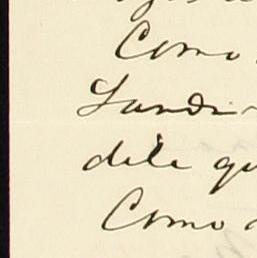 Como
Lundi-
dile qu
Como